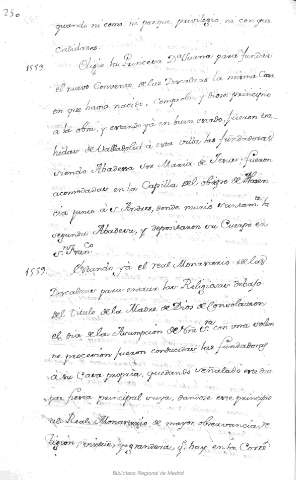 230
quando ni como, ni porque privilegio, ni con que
calidades.
1559. Eligió la Princesa Dª Juana para fundar
el nuevo Convento de las Descalzas la misma Casa
en que havia nacido. Compróla, y dióse principio
a la obra, y estando yá en buen estado, fueron tra
hidas de Valladolid á esta villa las fundadoras
siendo Abadesa Sor Maria de Jesus: fueron
acomodadas en la Capilla del obispo de Plasen
cia junto á Sn. Andres, donde murió santamte. la
segunda Abadesa, y depositaron su Cuerpo en
Sn. Franco.
1559. Estando yá el real Monasterio de las
Descalzas para entrar las Religiosas debajo
del titulo de la Madre de Dios de Consolacion
el dia de la Asumpcion de ntra Sra. con una solem
ne procesion fueron conducidas las fundadoras
á su Casa propia, quedando señalado este dia
por fiesta principal suya, dandose este principio
al Real Monasterio de mayor observancia, re
ligion y grandeza, q. hay en la Corte
Biblioteca Regional de Madrid